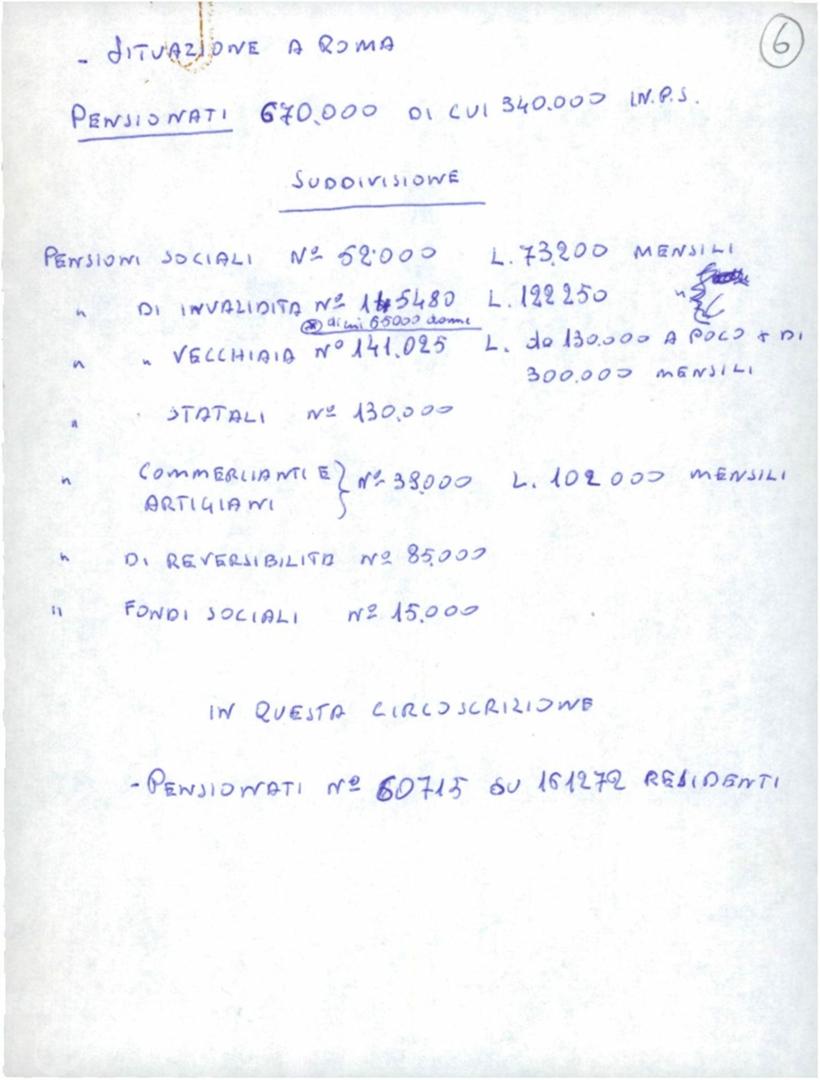 6
- SITUAZIONE A ROMA
PENSIONATI 670.000 DI CUI 340.000 IN.P.S.
SUDDIVISIONE
PENSIONI SOCIALI Nº 52.000 L. 73.200 MENSILI
" DI INVALIDITA Nº 145480 L. 122250 "
di cui 65000 donne
" " VECCHIAIA Nº 141.025 L. da 130.000 A POCO + DI
300.000 MENSILI
" STATALI Nº 130.000
" COMMERCIANTI E } Nº 39.000 L. 102.000 MENSILI
ARTIGIANI
" DI REVERSIBILITA Nº 85.000
" FONDI SOCIALI Nº 15.000
IN QUESTA CIRCOSCRIZIONE
- PENSIONATI Nº 60715 SU 161272 RESIDENTI